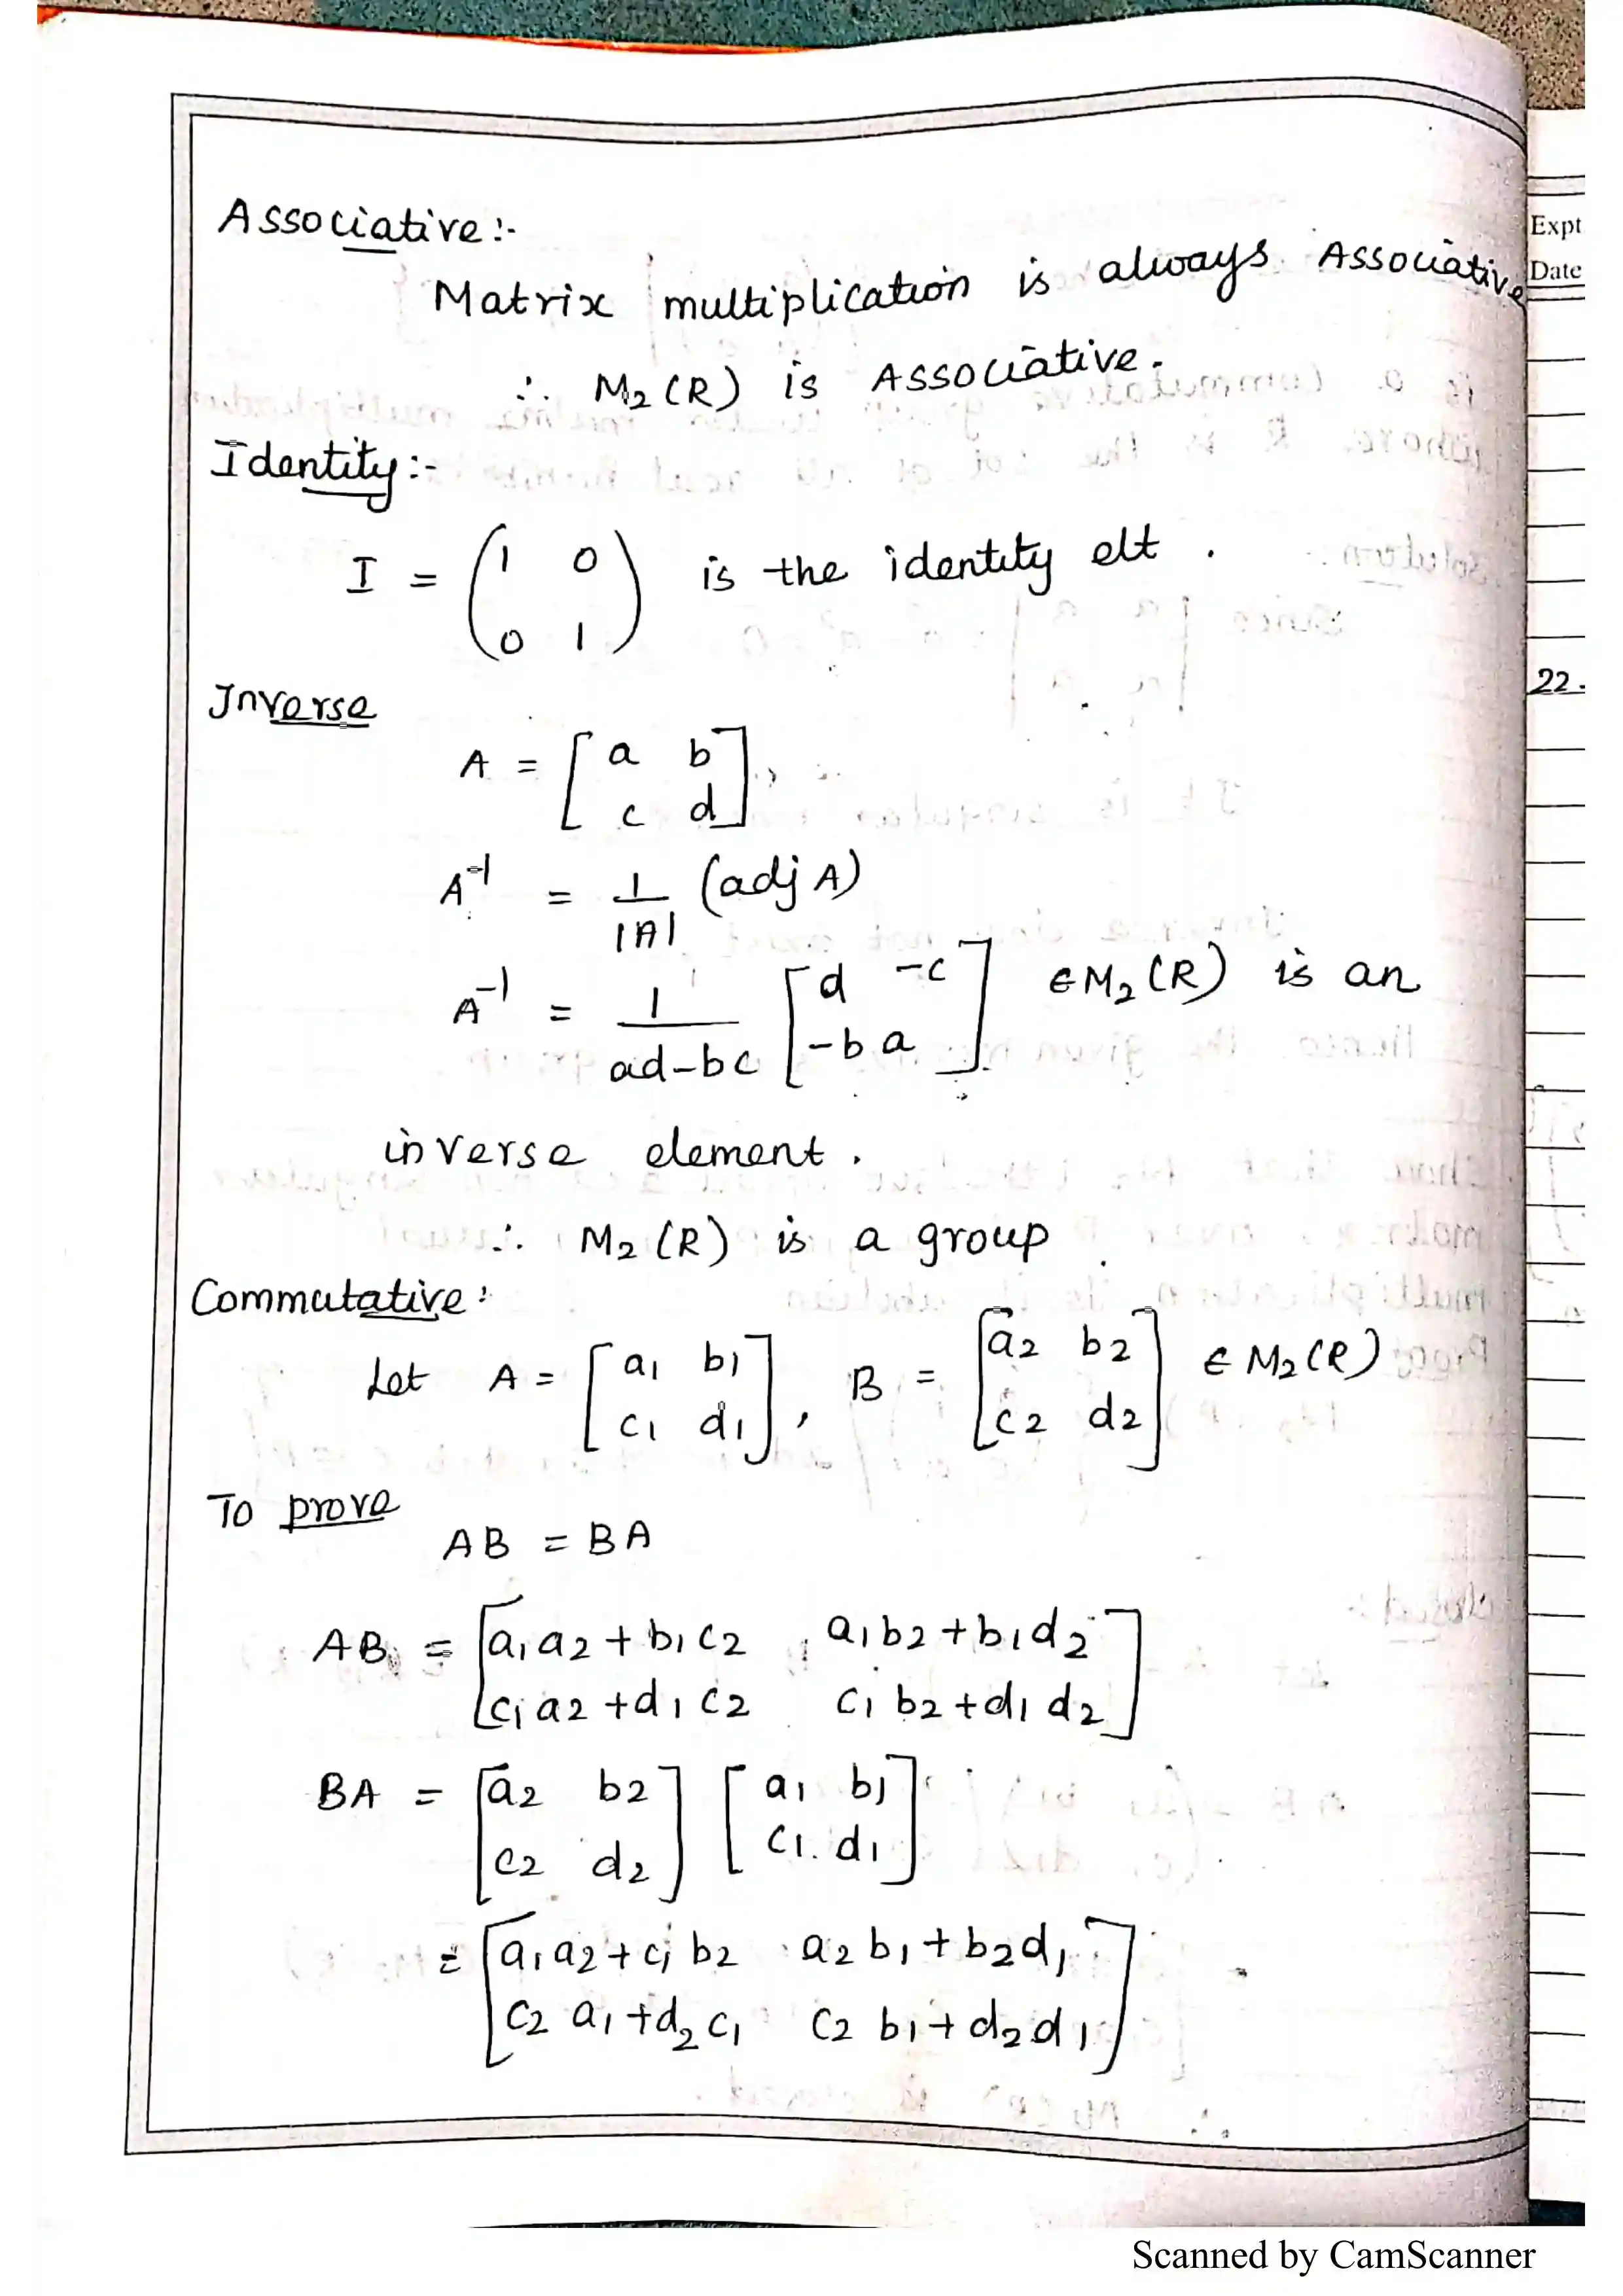 Associative:-
Matrix multiplication is always Associative
∴ M₂(R) is Associative.
Identity:-
I = (1 0
0 1) is the identity elt.
Inverse
A = [a b
c d],
A⁻¹ = 1/|A| (adj A)
A⁻¹ = 1/(ad-bc) [d -c
-b a] ∈ M₂(R) is an
inverse element.
∴ M₂(R) is a group.
Commutative:
Let A = [a₁ b₁
c₁ d₁], B = [a₂ b₂
c₂ d₂] ∈ M₂(R)
To prove
AB = BA
AB = [a₁a₂+b₁c₂ a₁b₂+b₁d₂
c₁a₂+d₁c₂ c₁b₂+d₁d₂]
BA = [a₂ b₂
c₂ d₂] [a₁ b₁
c₁ d₁]
= [a₁a₂+c₁b₂ a₂b₁+b₂d₁
c₂a₁+d₂c₁ c₂b₁+d₂d₁]
Expt
Date
22.
Scanned by CamScanner